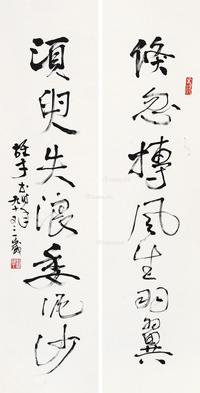 倏忽摶風生羽翼
須臾失浪委泥沙